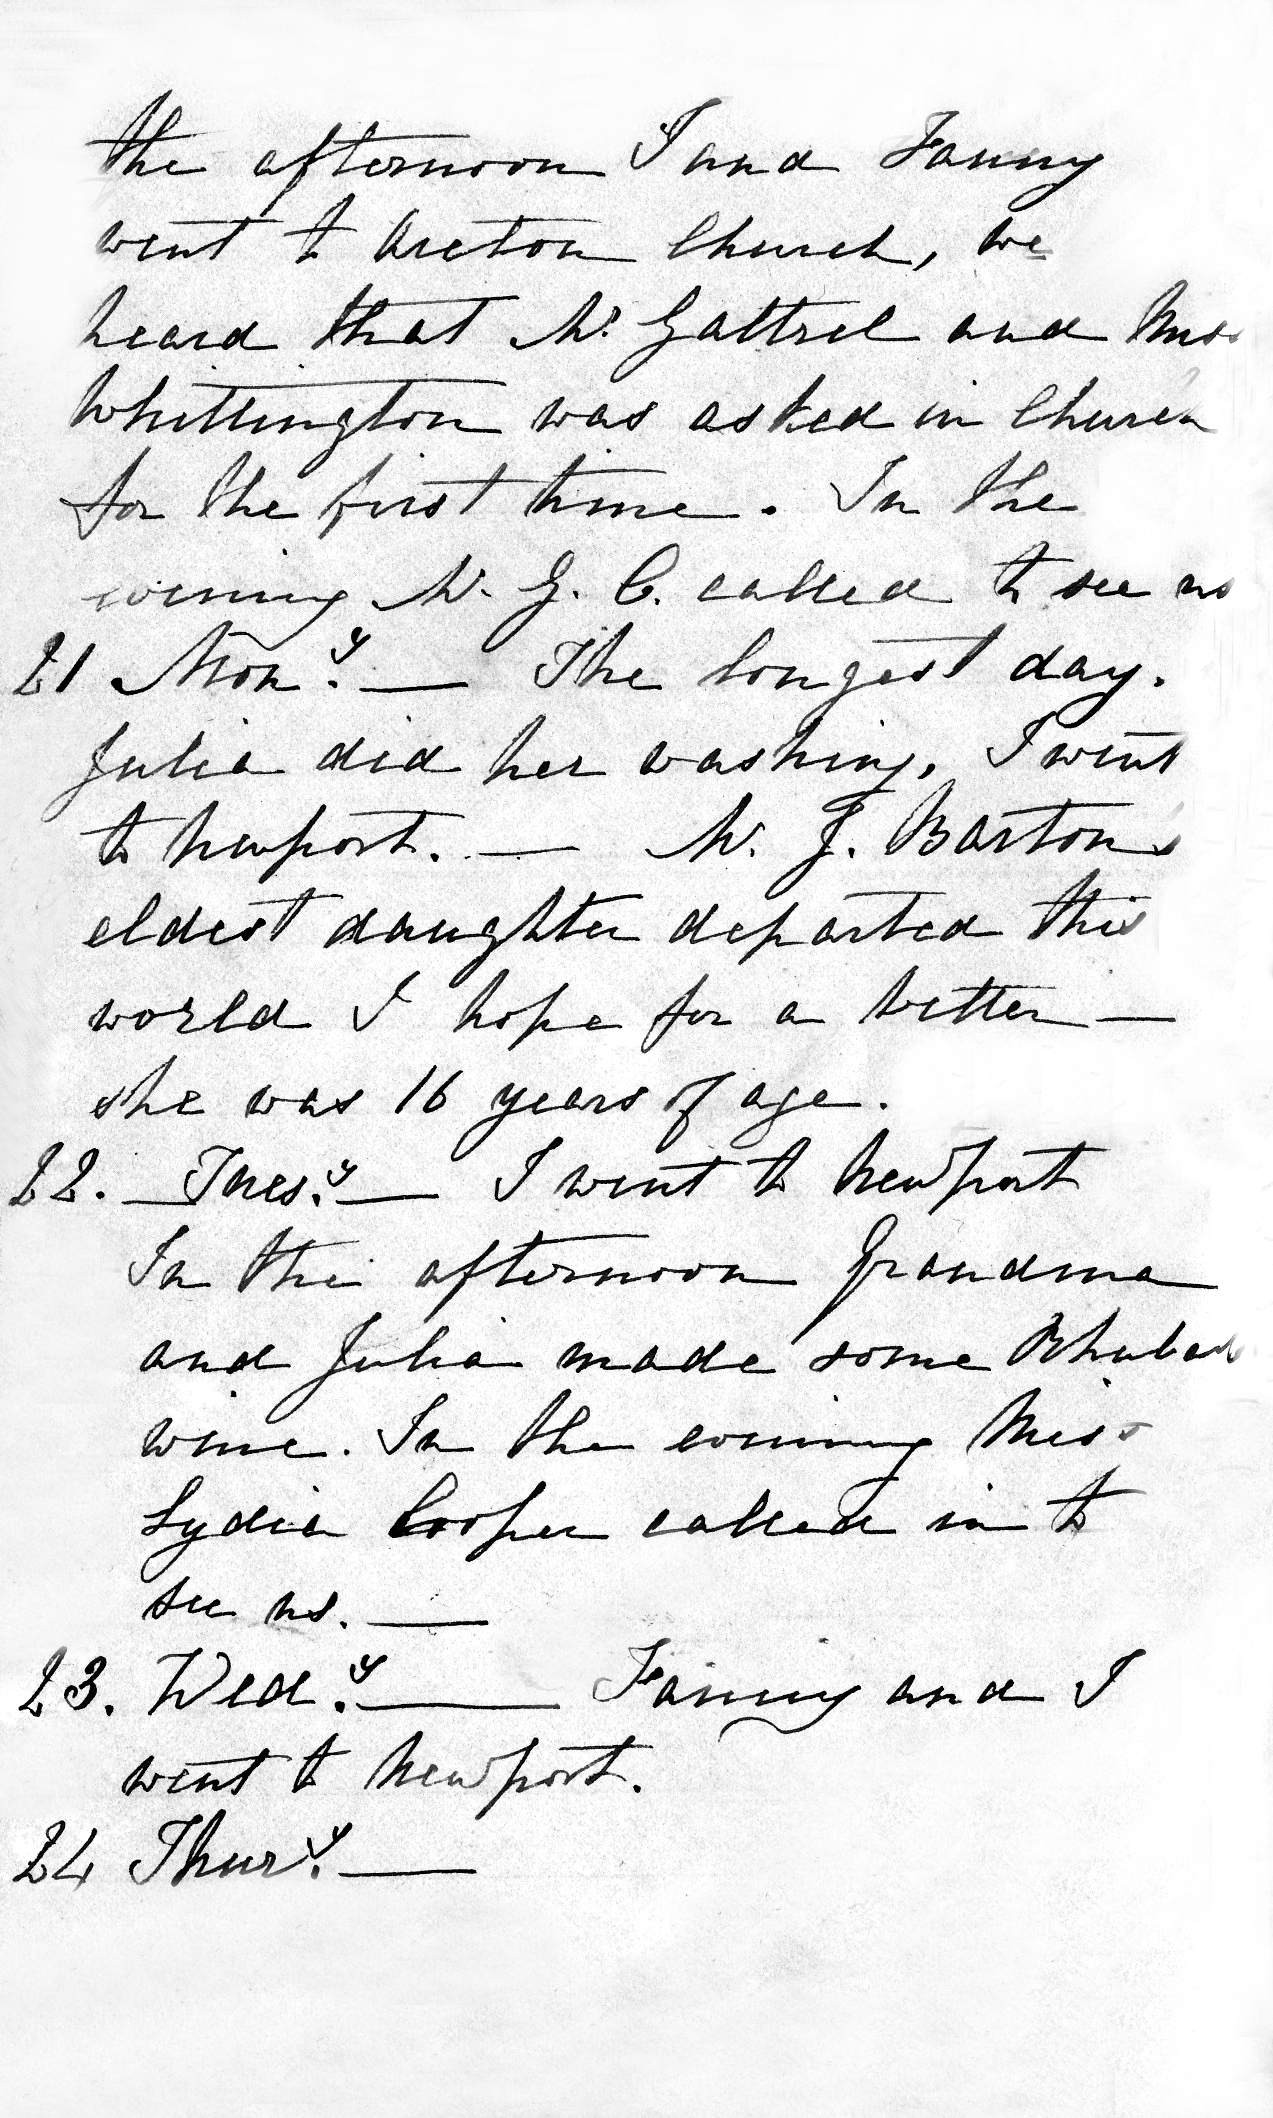 the afternoon I and Fanny
went to Areton Church, we
heard that Mr Gattrel and Miss
Whittington was asked in Church
for the first time. In the
evening Mr. G. C. called to see us
21 Mon.y — The longest day.
Julia did her washing, I went
to Newport. — Mr. J. Bartons
eldest daughter departed this
world I hope for a better —
she was 16 years of age.
22. — Tues.y — I went to Newport
In the afternoon Grandma
and Julia made some Rhubarb
wine. In the evening Miss
Lydia Cooper called in to
see us. —
23. Wed.y — Fanny and I
went to Newport.
24 Thur.y —